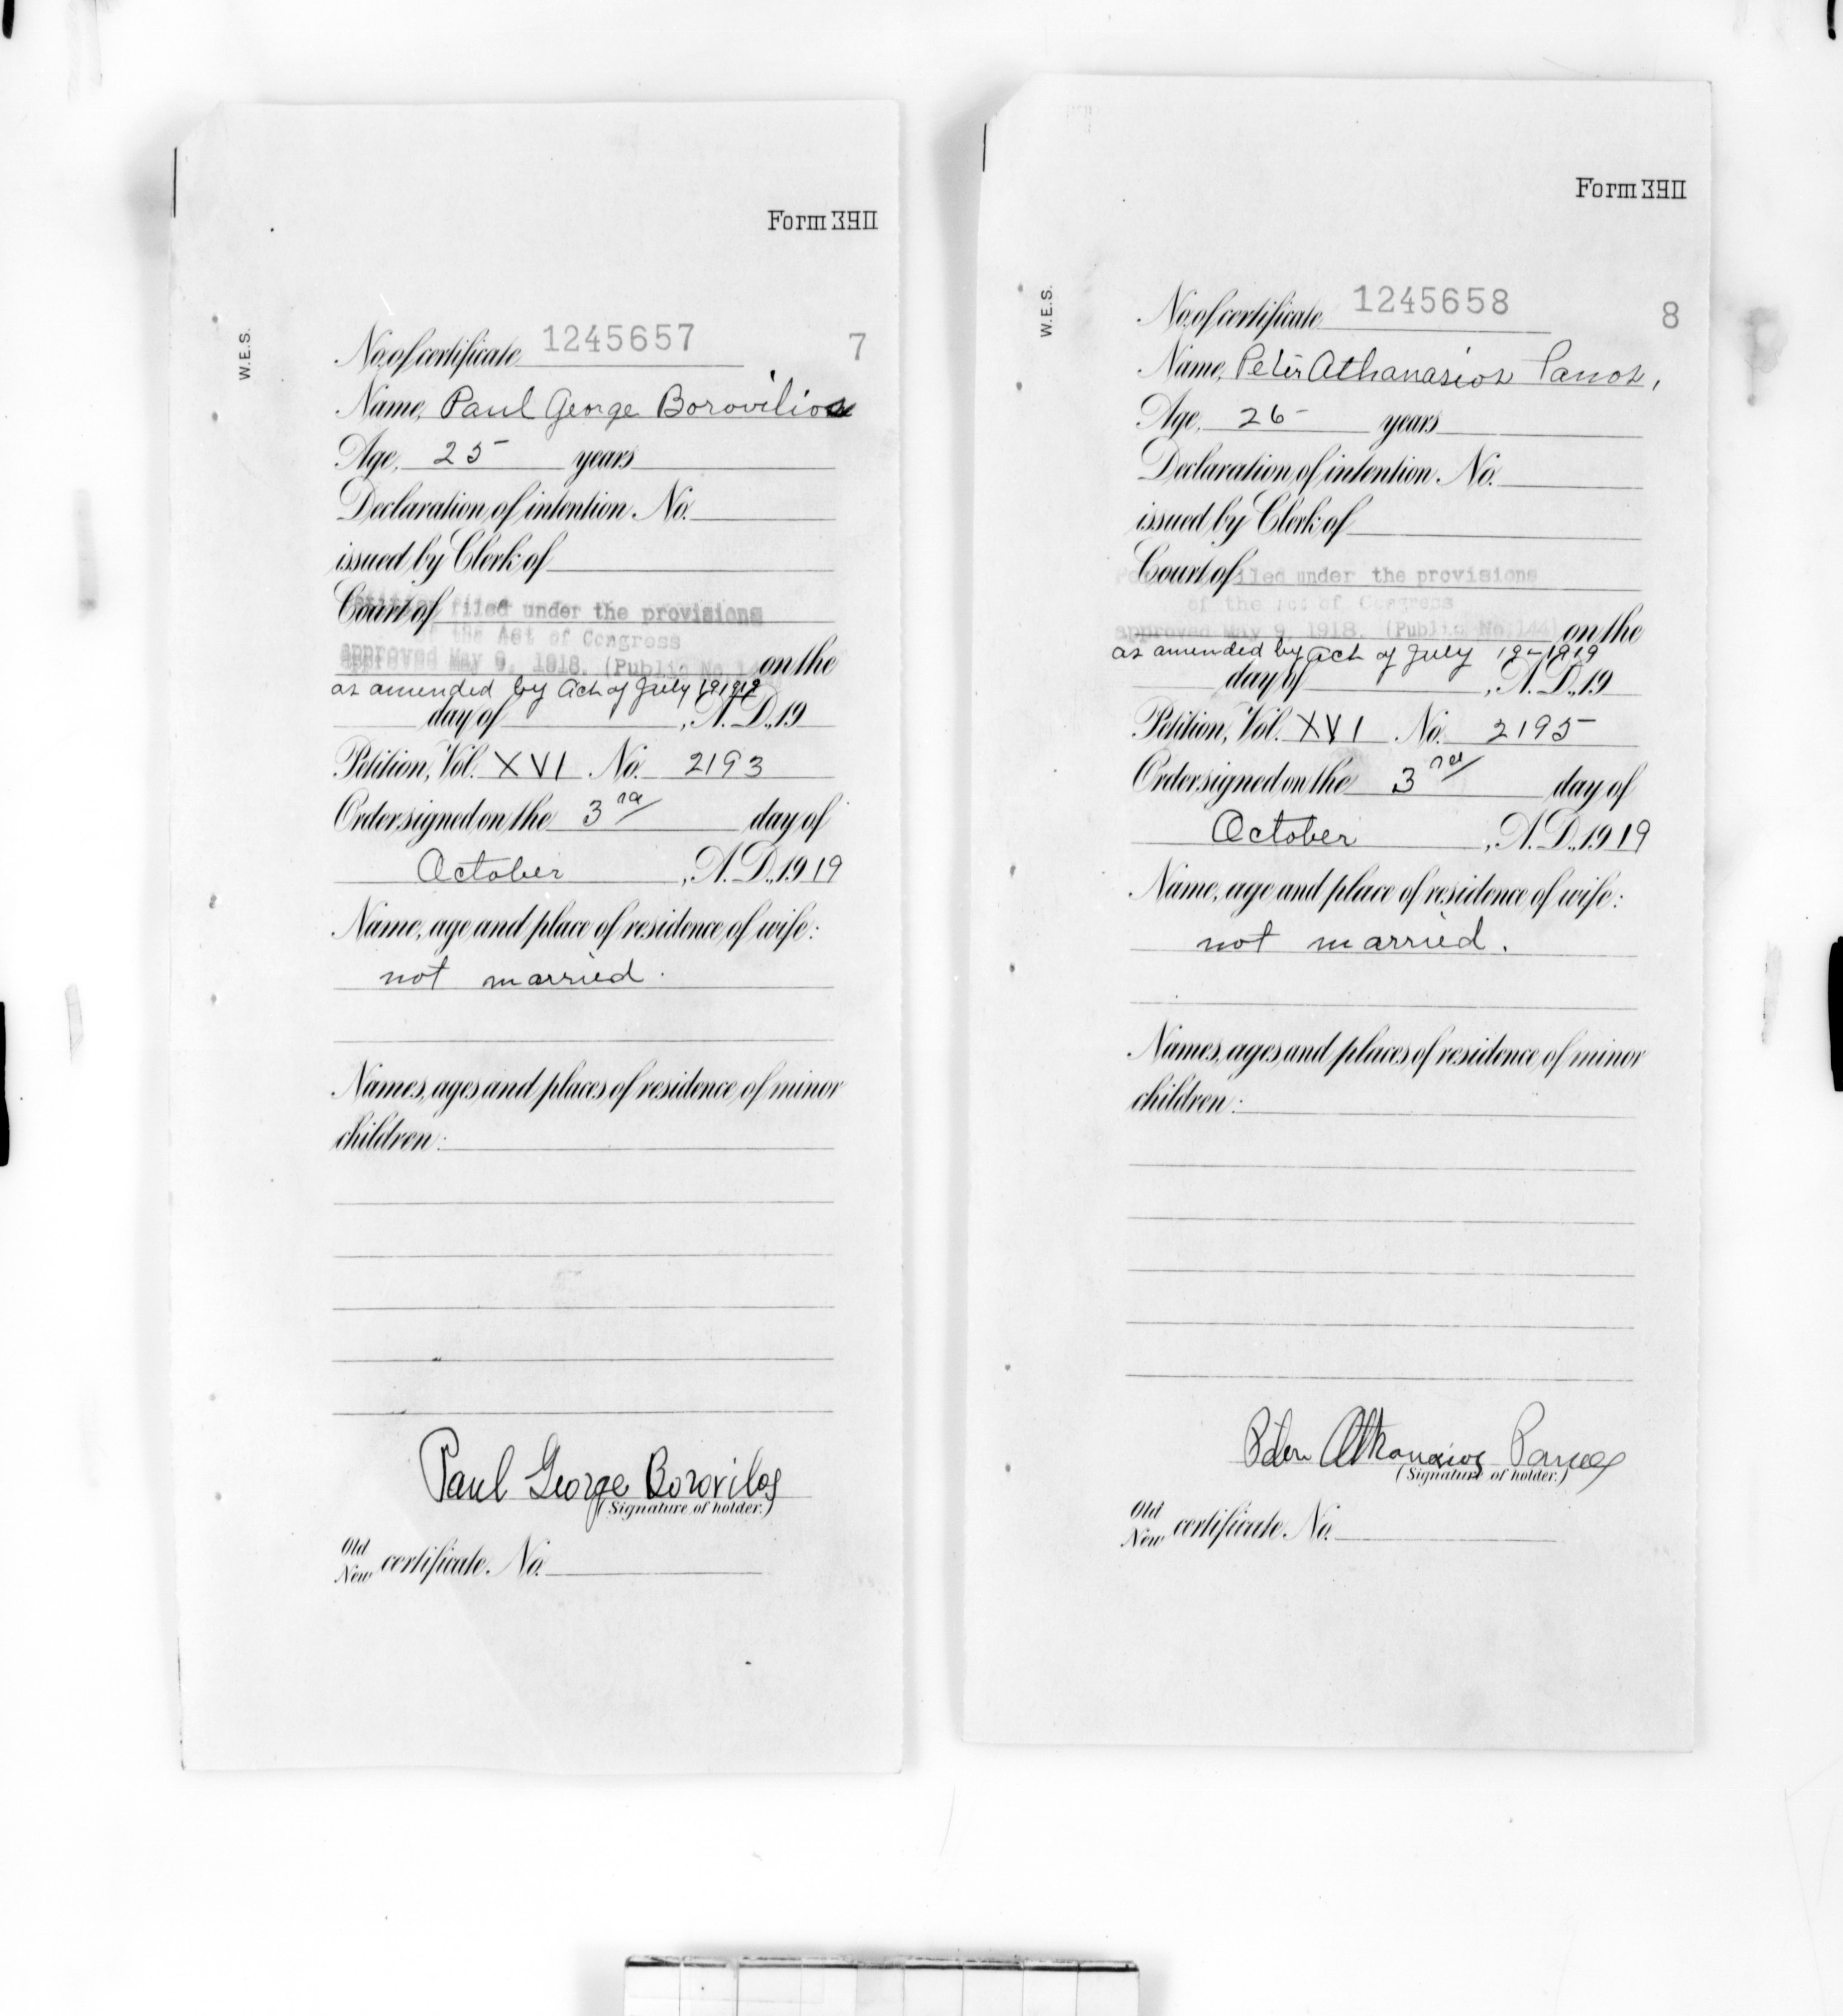 Form 390
W.E.S.
No. of certificate 1245657 7
Name, Paul George Borovilios
Age, 25 years
Declaration of intention No.
issued by Clerk of
Court of
Petition filed under the provisions
of the Act of Congress
approved May 9, 1918. (Public No. 144) on the
as amended by Act of July 19 1919
day of , A.D., 19
Petition, Vol. XVI No. 2193
Order signed on the 3rd day of
October , A.D., 1919
Name, age and place of residence of wife:
not married.
Names, ages and places of residence of minor
children:
Paul George Borovilos
(Signature of holder.)
Old
New certificate No.
Form 390
W.E.S.
No. of certificate 1245658 8
Name, Peter Athanasios Panos,
Age, 26 years
Declaration of intention No.
issued by Clerk of
Court of
filed under the provisions
of the Act of Congress
approved May 9, 1918. (Public No. 144) on the
as amended by Act of July 19-1919
day of , A.D., 19
Petition, Vol. XVI No. 2195
Order signed on the 3rd day of
October , A.D., 1919
Name, age and place of residence of wife:
not married.
Names, ages and places of residence of minor
children:
Peter Athanasios Panos
(Signature of holder.)
Old
New certificate No.